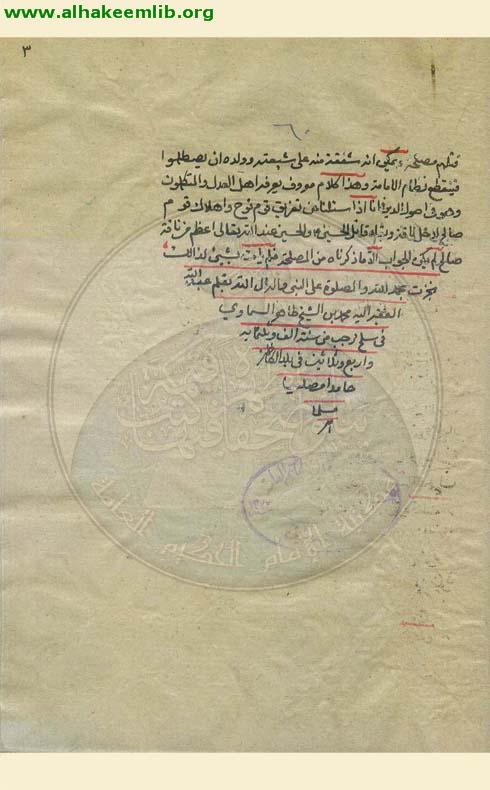 www.alhakeemlib.org
٣
٦٠
قتلهم مصلحة، يمكن انه شفقة منه على شيعته وولده ان يصطلموا
فينقطع نظام الامامة وهذا كلام معروف يعرفه اهل العدل والمتكلمون
وهو في اصول الدين انا اذا سئلنا عن تغريق قوم نوح واهلاك قوم
صالح لاجل ناقة وبقاء قاتل الحسين والحسين عند الله تعالى اعظم من ناقة
صالح لم يكن الجواب الا ما ذكرناه من المصلحة
نجزت بحمد الله والصلوة على النبي واله ال الله بقلم عبد الله
الفقير اليه محمد بن الشيخ طاهر السماوي
في سلخ رجب من سنة الف وثلثمائة
واربع وثلاثين في بلد الكاظم
حامدا مصليا
مسلما
مكتبة الإمام الحكيم العامة